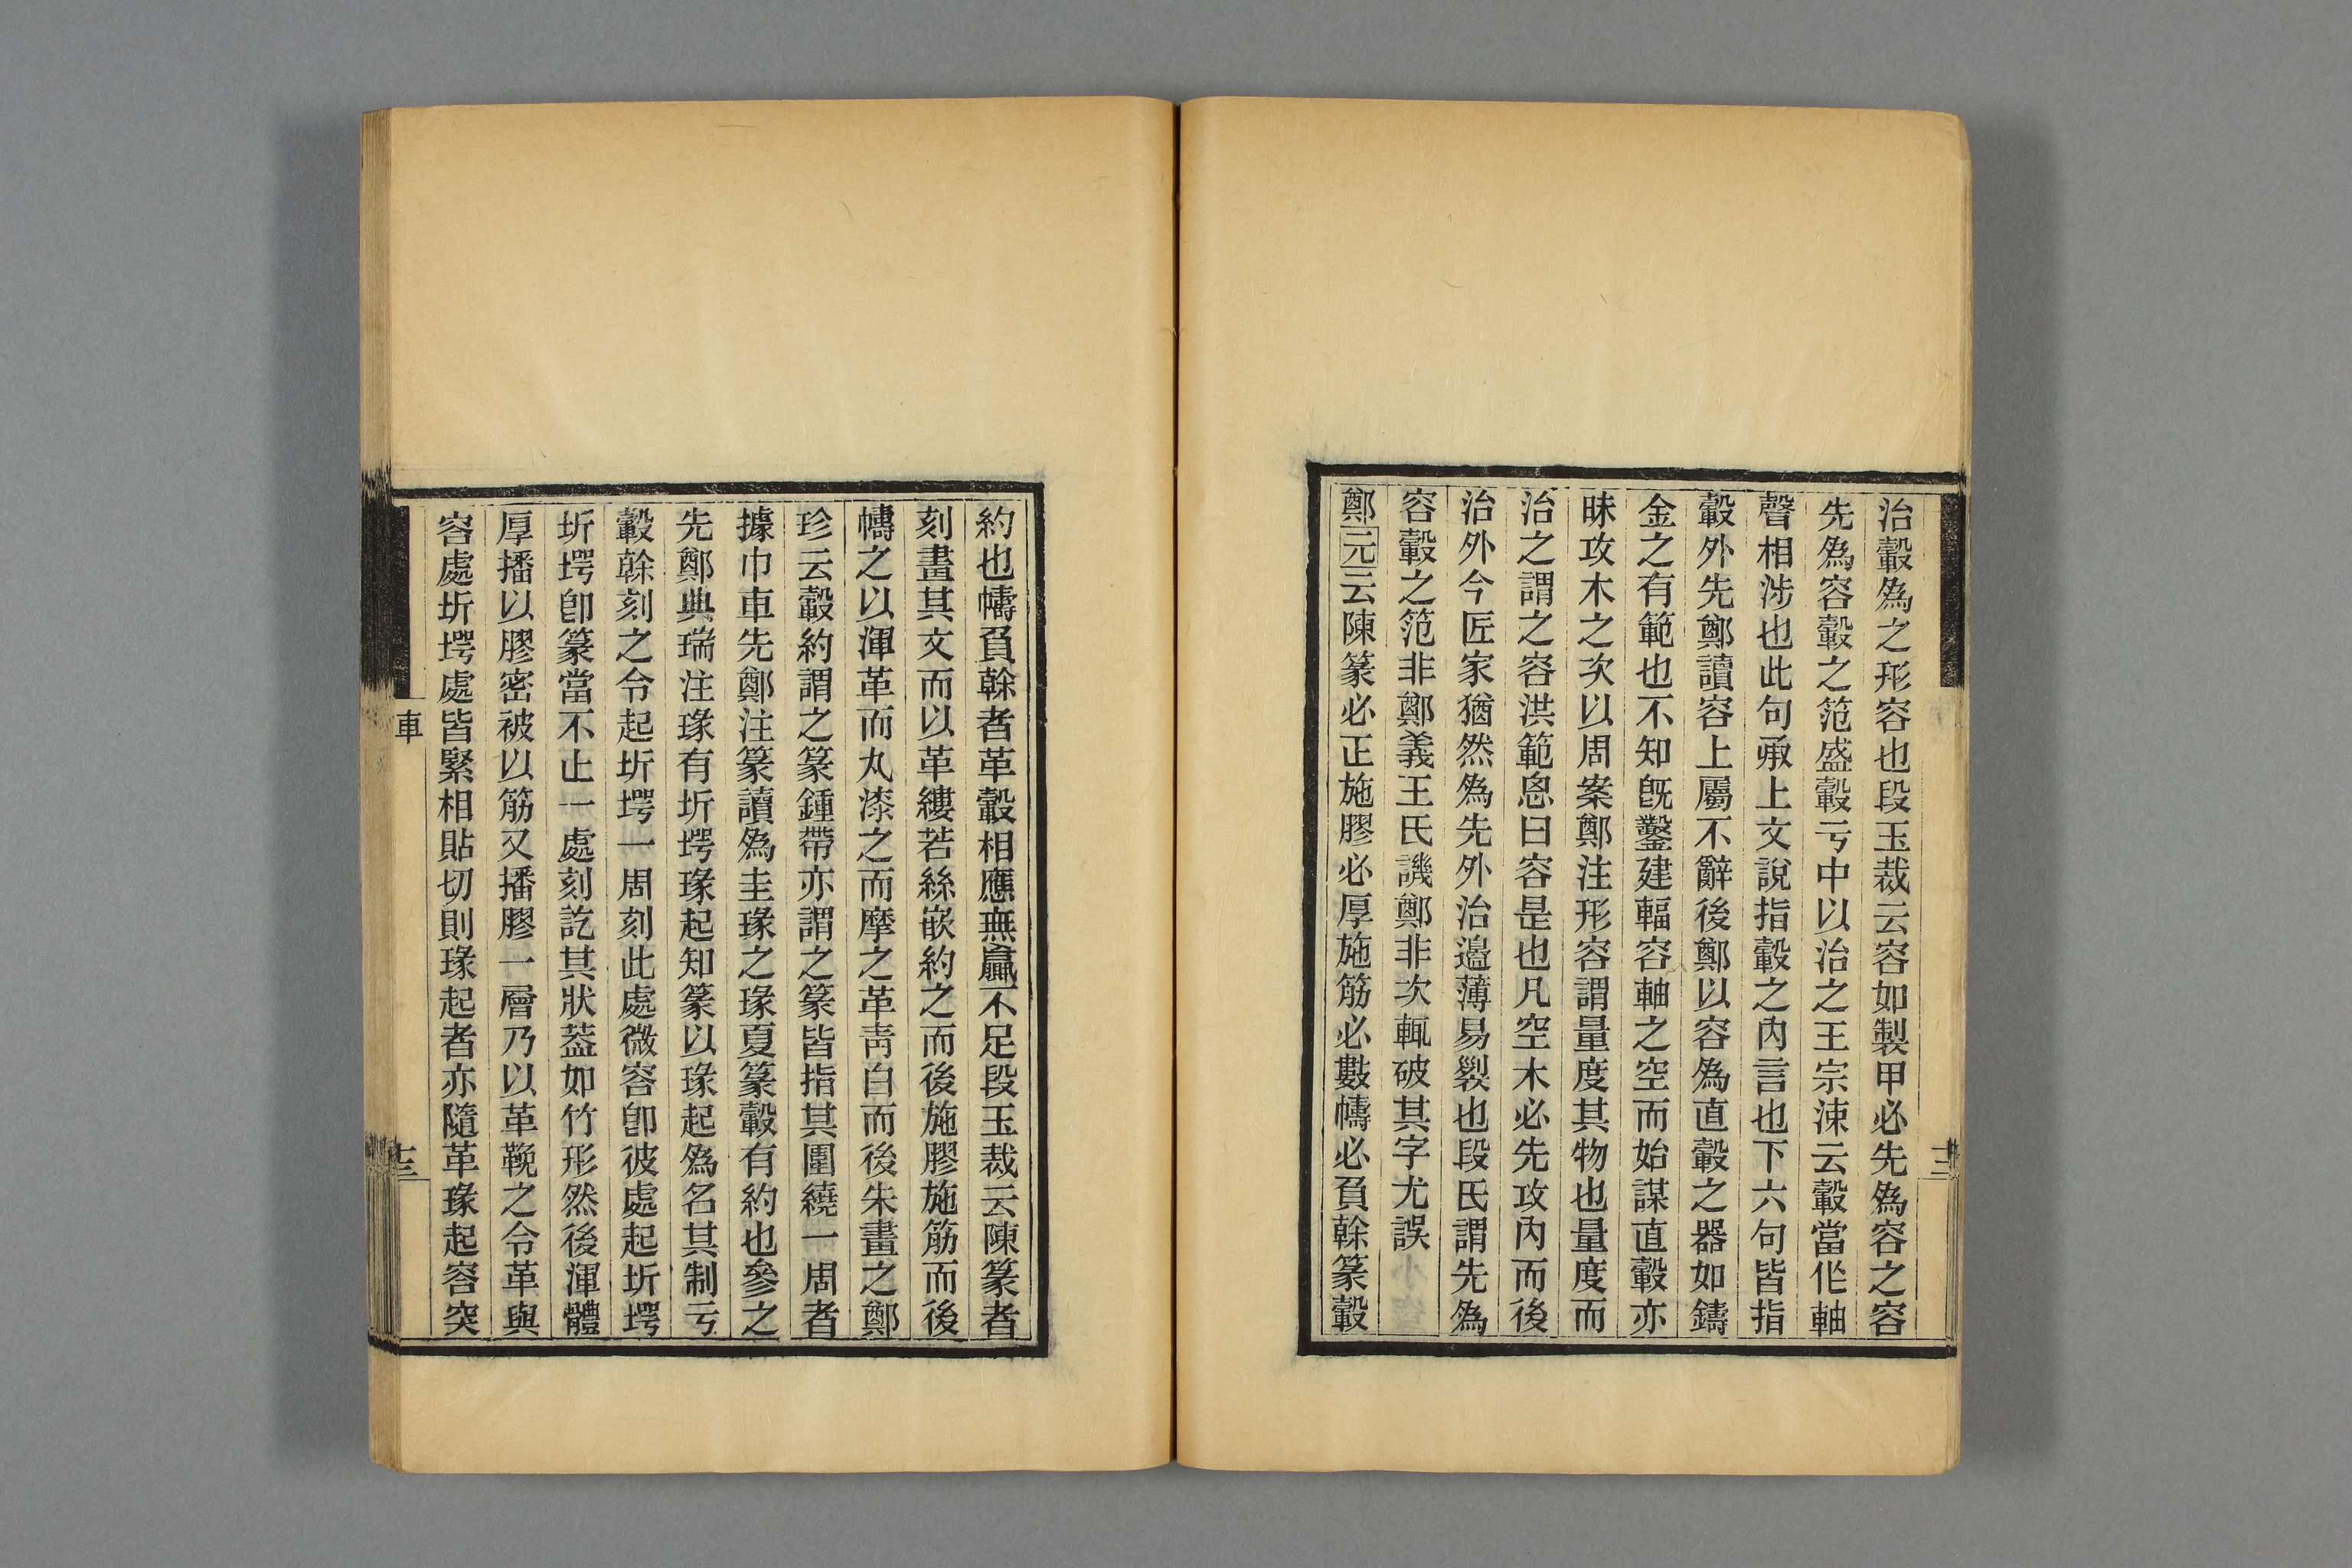 治轂爲之形容也段玉裁云容如製甲必先爲容之容
先爲容轂之笵盛轂亏中以治之王宗涑云轂當作軸
聲相涉也此句承上文說指轂之內言也下六句皆指
轂外先鄭讀容上屬不辭後鄭以容爲直轂之器如鑄
金之有範也不知旣鑿建輻容軸之空而始謀直轂亦
昧攻木之次以周案鄭注形容謂量度其物也量度而
治之謂之容洪範恖曰容是也凡空木必先攻內而後
治外今匠家猶然爲先外治邉薄易裂也段氏謂先爲
容轂之笵非鄭義王氏譏鄭非次輒破其字尤誤
鄭元云陳篆必正施膠必厚施筋必數幬必負榦篆轂
約也幬負榦者革轂相應無贏不足段玉裁云陳篆者
刻畫其文而以革縷若絲嵌約之而後施膠施筋而後
幬之以渾革而丸漆之而摩之革靑白而後朱畫之鄭
珍云轂約謂之篆鍾帶亦謂之篆皆指其圍繞一周者
據巾車先鄭注篆讀爲圭瑑之瑑夏篆轂有約也參之
先鄭典瑞注瑑有圻堮瑑起知篆以瑑起爲名其制亏
轂榦刻之令起圻堮一周刻此處微容卽彼處起圻堮
圻堮卽篆當不止一處刻訖其狀葢如竹形然後渾體
厚播以膠密被以筋又播膠一層乃以革鞔之令革與
容處圻堮處皆緊相貼切則瑑起者亦隨革瑑起容突
車
十三